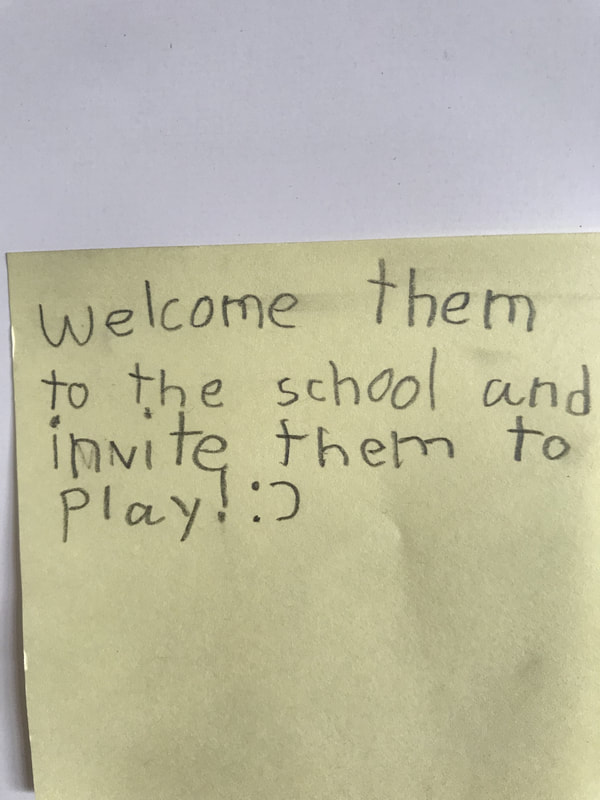 Welcome them
to the school and
invite them to
play! :)